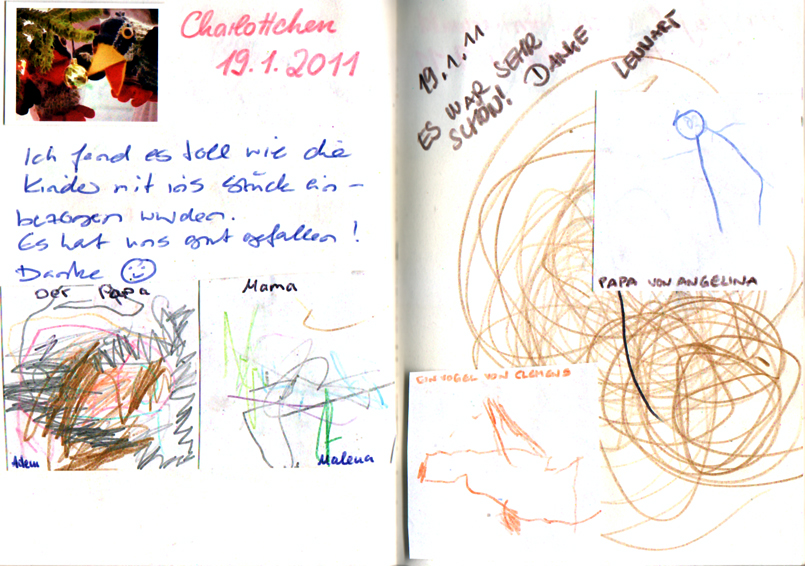 Charlottchen
19.1.2011
Ich fand es toll wie die
Kinder mit ins Stück ein-
bezogen wurden.
Es hat uns gut gefallen!
Danke
Der Papa
Adem
Mama
Malena
19.1.11
ES WAR SEHR
SCHÖN! DANKE
LENNART
PAPA VON ANGELINA
EIN VOGEL VON CLEMENS